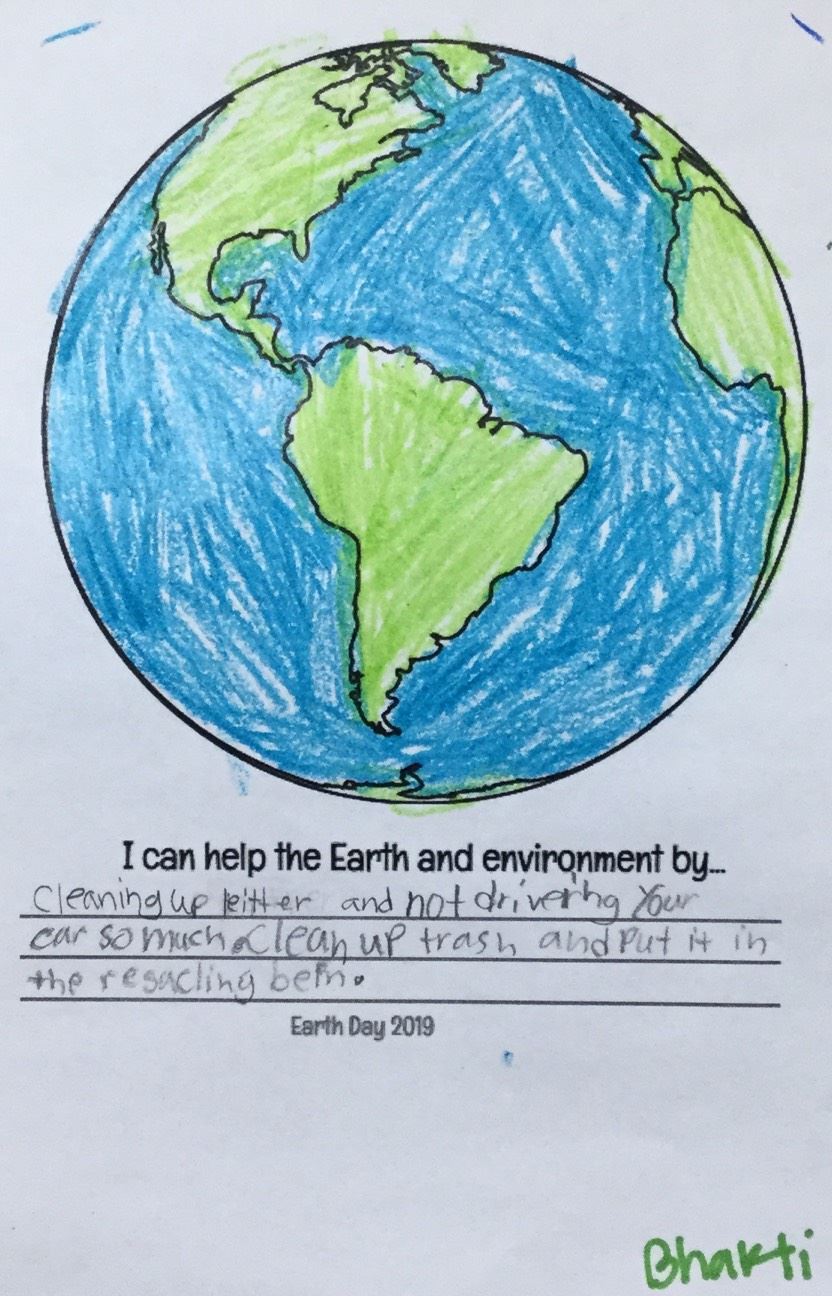 I can help the Earth and environment by...
Cleaning up leitter and not drivering Your
car so much. Clean up trash and Put it in
the resacling bein.
Earth Day 2019
Bhakti